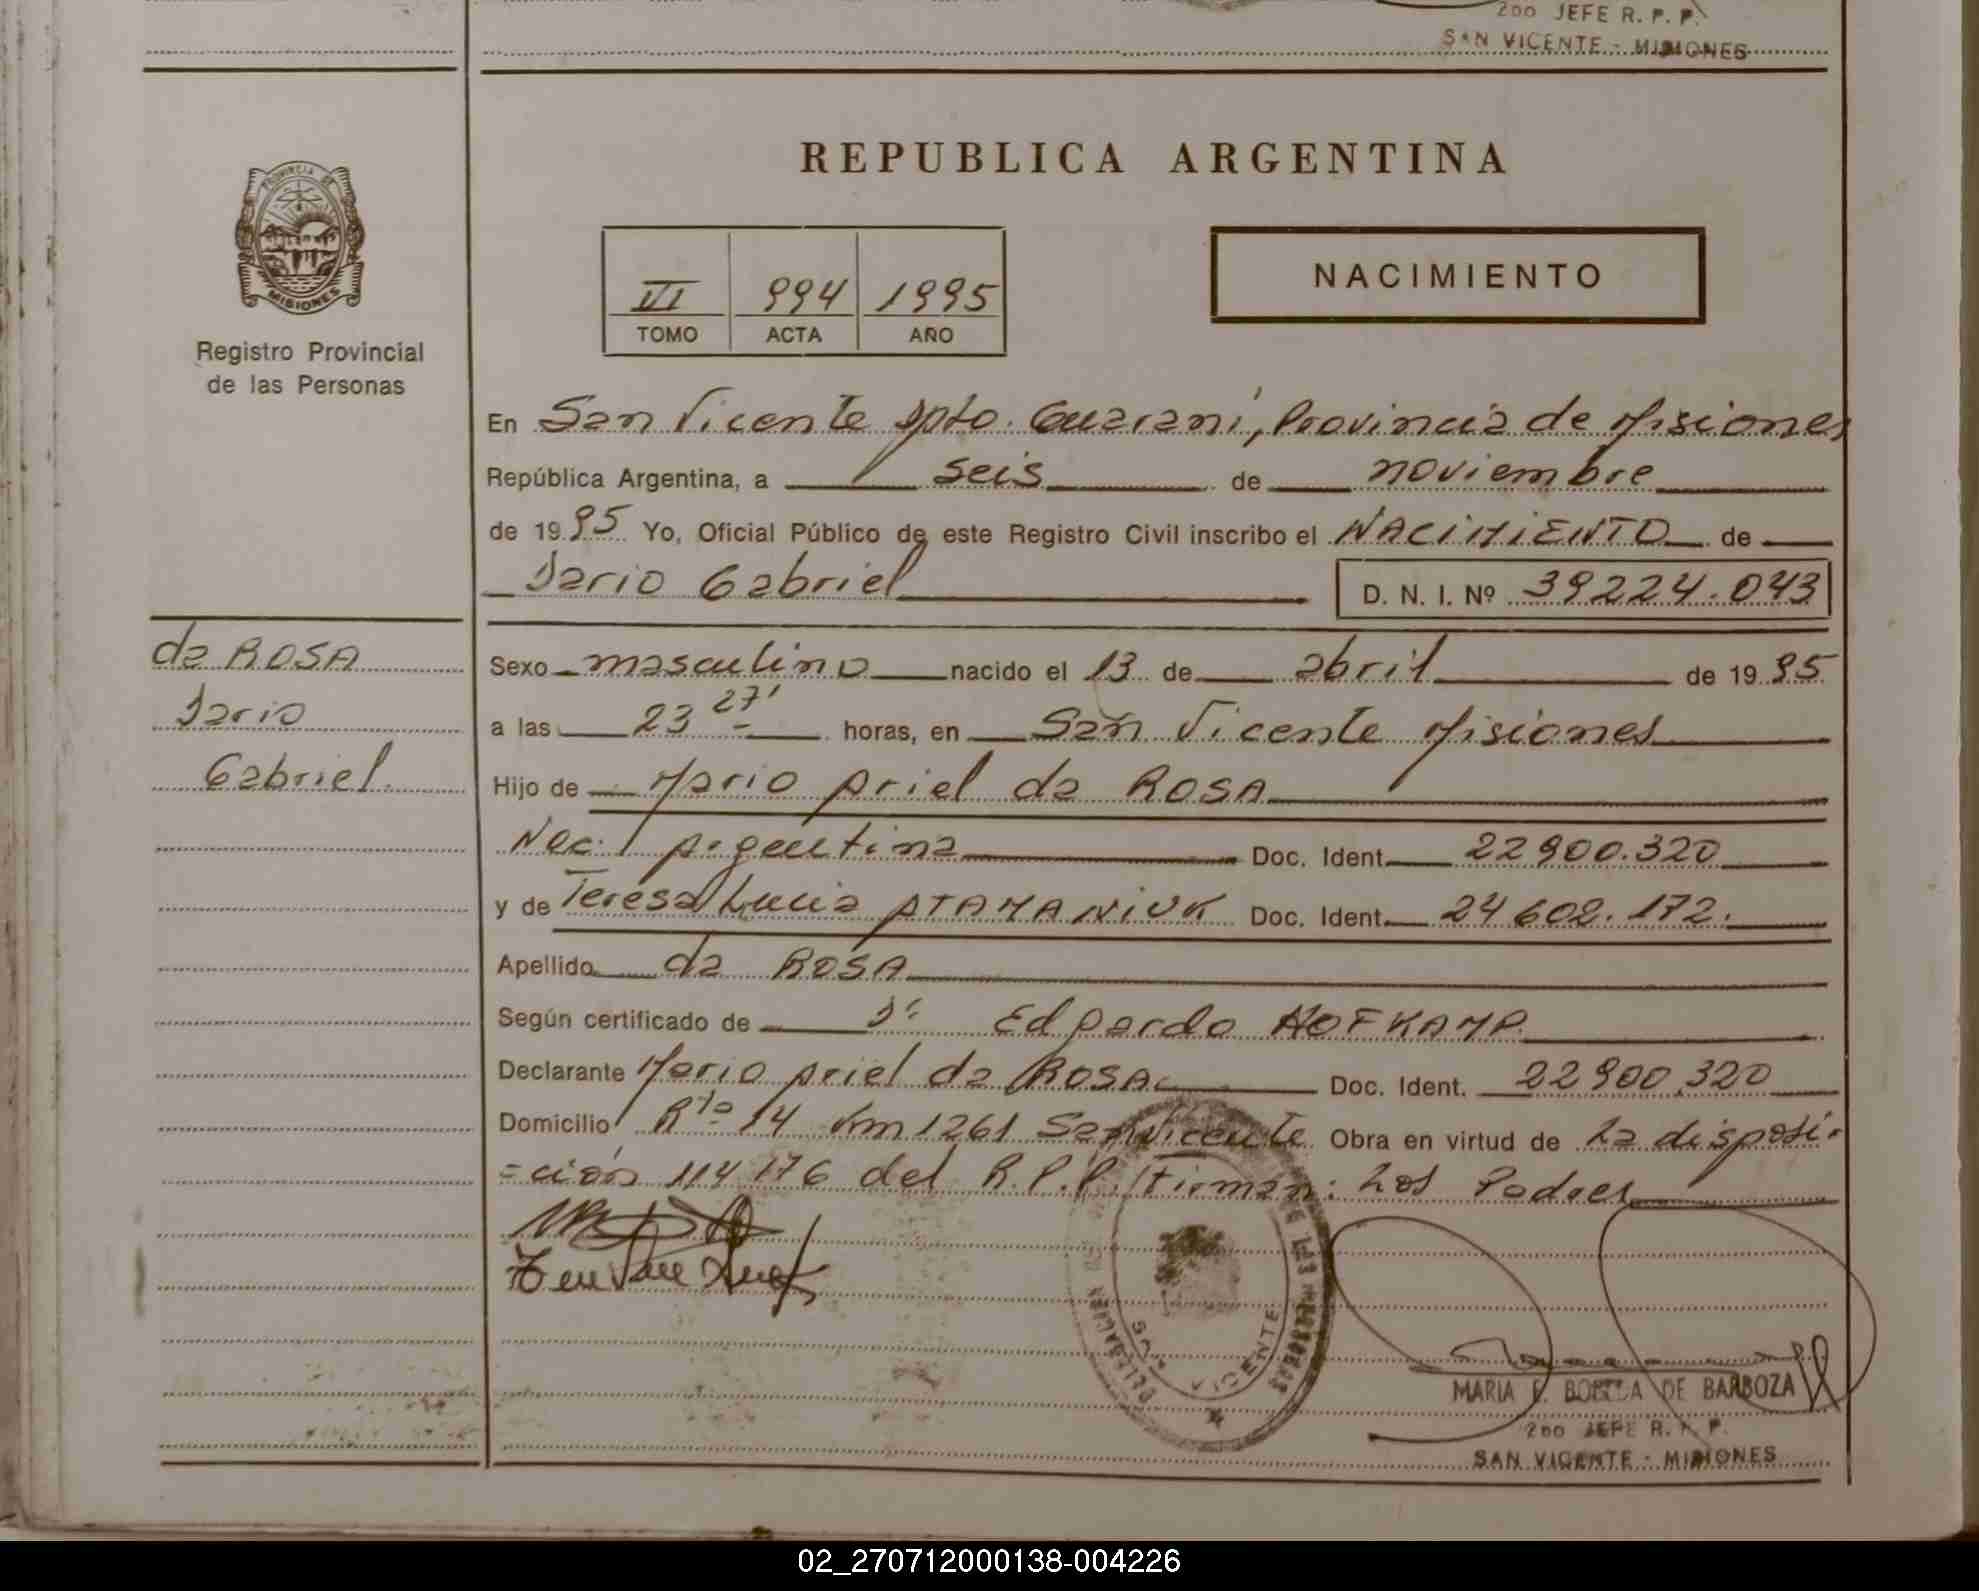 2do JEFE R. P. P.
SAN VICENTE - MISIONES
REPUBLICA ARGENTINA
PROVINCIA DE
MISIONES
Registro Provincial
de las Personas
VI 994 1995
TOMO ACTA AÑO
NACIMIENTO
En San Vicente Dpto. Guarani, Provincia de Misiones
República Argentina, a seis de noviembre
de 1995 Yo, Oficial Público de este Registro Civil inscribo el NACIMIENTO de
Dario Gabriel D. N. I. Nº 39224.043
da ROSA
Dario
Gabriel.
Sexo masculino nacido el 13 de abril de 1995
a las 23 27' horas, en San Vicente Misiones
Hijo de Mario Ariel da ROSA
Nac. Argentina Doc. Ident. 22900.320
y de Teresa Lucia ATAMANIUK Doc. Ident. 24602.172.
Apellido da ROSA
Según certificado de Dr Edgardo HOFKAMP.
Declarante Mario Ariel da ROSA Doc. Ident. 22900.320
Domicilio Rta 14 Km 1261 San Vicente Obra en virtud de La disposi-
=ción 114176 del R.P.P. Firman: Los Padres
DELEGACION
SAN VICENTE
MARIA E. DE BARBOZA
2do JEFE R. P. P.
SAN VICENTE - MISIONES
02_270712000138-004226